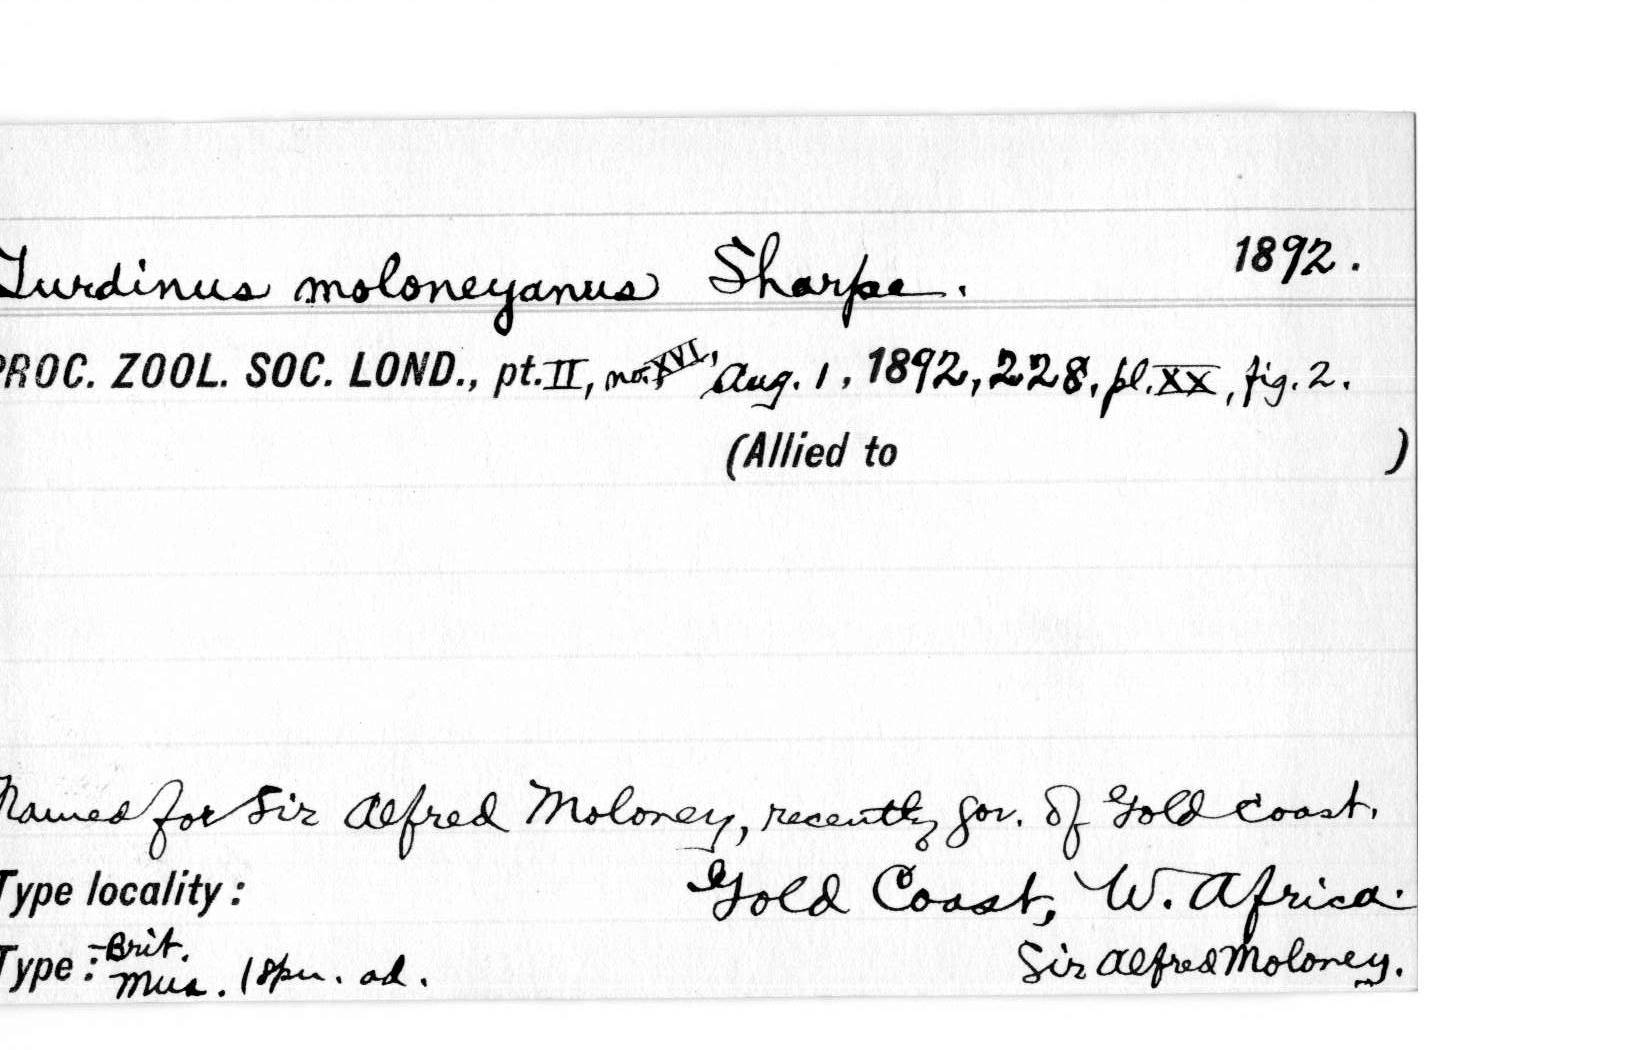 Turdinus moloneyanus Sharpe. 1892.
PROC. ZOOL. SOC. LOND., pt. II, no. XVI, Aug. 1, 1892, 228, pl. XX, fig. 2.
(Allied to )
Named for Sir Alfred Moloney, recently gov. of Gold Coast.
Type locality: Gold Coast, W. Africa.
Type: Brit. Mus. 1 spn. ad. Sir Alfred Moloney.